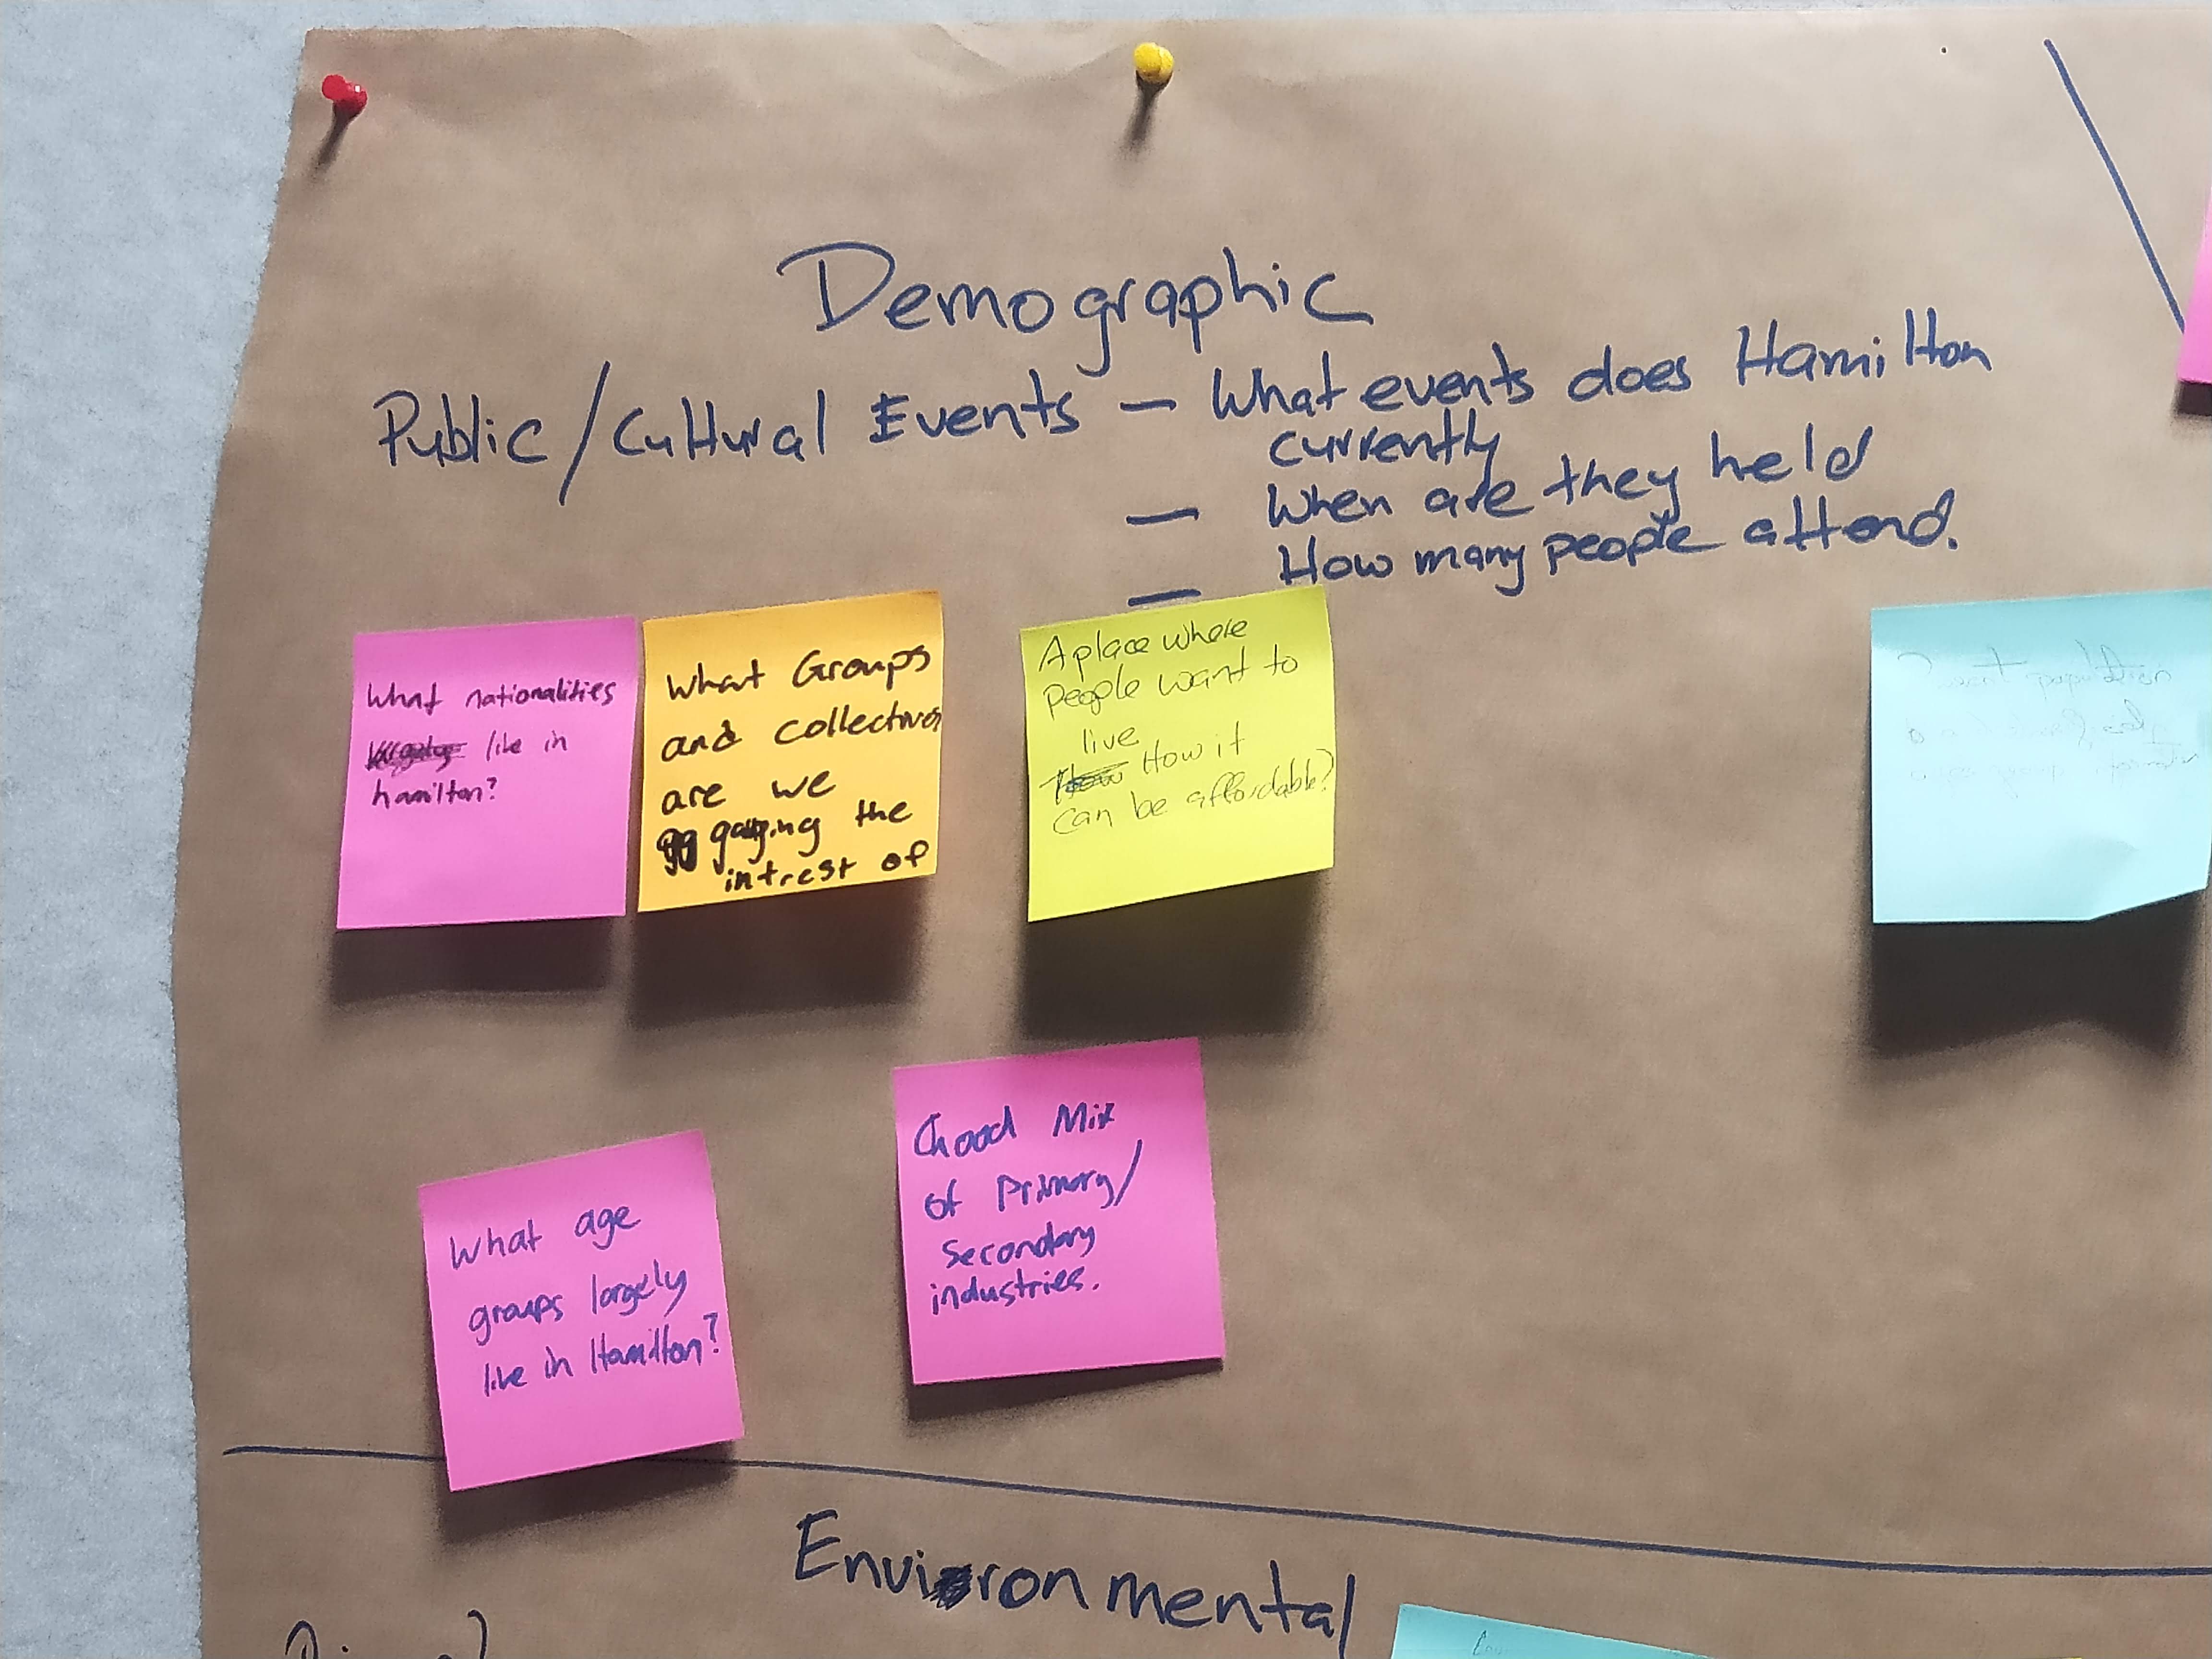 Demographic
Public/Cultural Events - What events does Hamilton
currently
- When are they held
- How many people attend.
What nationalities
live in
hamilton?
What Groups
and collectives
are we
gauging the
intrest of
A place where
people want to
live
How it
can be affordable?
population
What age
groups largely
live in Hamilton?
Good Mix
of Primary/
Secondary
industries.
Environmental